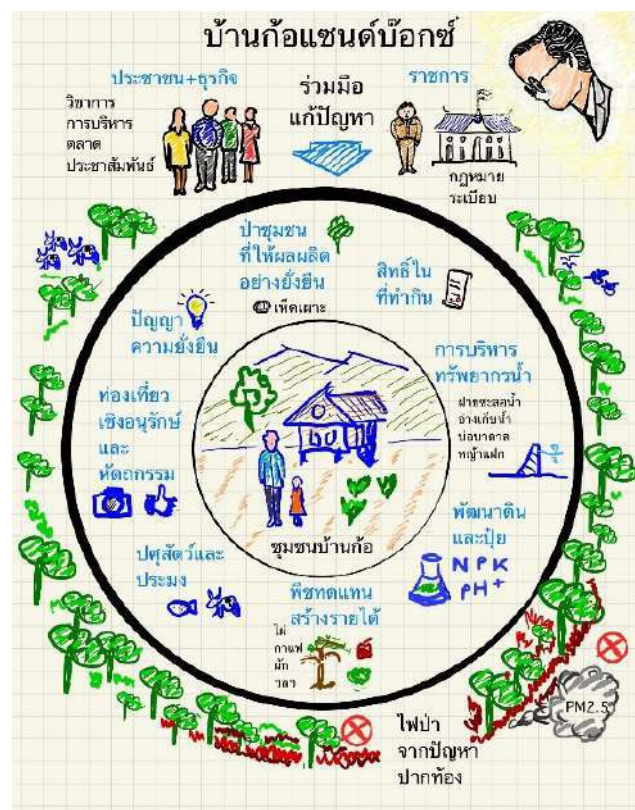 บ้านก้อแซนด์บ๊อกซ์
ประชาชน+ธุรกิจ
วิชาการ
การบริหาร
ตลาด
ประชาสัมพันธ์
ร่วมมือ
แก้ปัญหา
ราชการ
กฎหมาย
ระเบียบ
ป่าชุมชน
ที่ให้ผลผลิต
อย่างยั่งยืน
เห็ดเผาะ
สิทธิ์ใน
ที่ทำกิน
ปัญญา
ความยั่งยืน
การบริหาร
ทรัพยากรน้ำ
ฝายชะลอน้ำ
อ่างเก็บน้ำ
บ่อบาดาล
หญ้าแฝก
ท่องเที่ยว
เชิงอนุรักษ์
และ
หัตถกรรม
ชุมชนบ้านก้อ
พัฒนาดิน
และปุ๋ย
NPK
pH+
ปศุสัตว์และ
ประมง
พืชทดแทน
สร้างรายได้
ไผ่
กาแฟ
ผัก
ฯลฯ
PM2.5
ไฟป่า
จากปัญหา
ปากท้อง